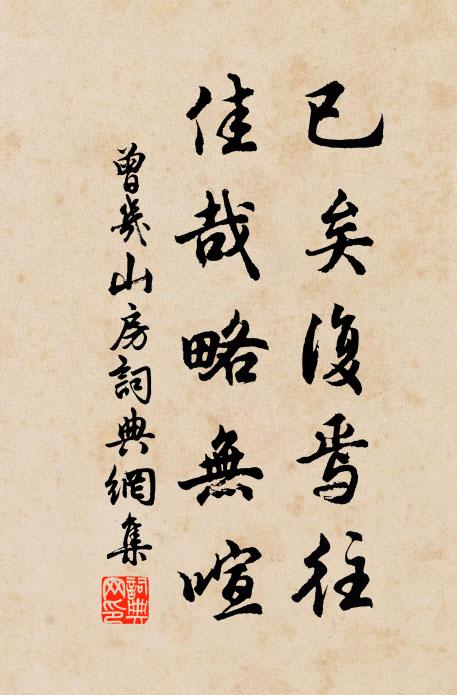 已矣復焉往
佳哉略無喧
曾幾山房詞典網集
詞典